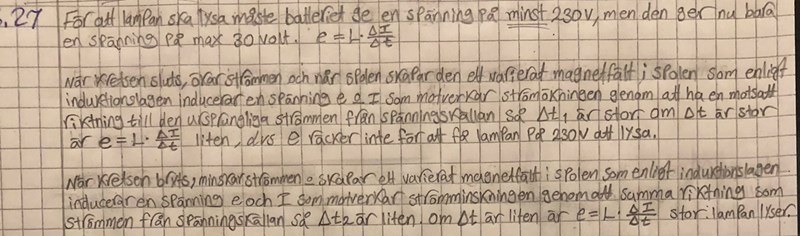 .27 För att lampan ska lysa måste batteriet ge en spänning på minst 230V, men den ger nu bara
en spänning på max 30 volt. e = L · ΔI/Δt
När kretsen sluts, ökar strömmen och när spolen skapar den ett varierat magnetfält i spolen som enligt
induktionslagen inducerar en spänning e o I som motverkar strömökningen genom att ha en motsatt
riktning till den ursprungliga strömmen från spänningskällan så Δt₁ är stor om Δt är stor
är e = L · ΔI/Δt liten, dvs e räcker inte för att få lampan på 230V att lysa.
När kretsen bryts, minskar strömmen o skapar ett varierat magnetfält i spolen som enligt induktionslagen
inducerar en spänning e och I som motverkar strömminskningen genom att samma riktning som
strömmen från spänningskällan så Δt₂ är liten. om Δt är liten är e = L · ΔI/Δt stor i lampan lyser.